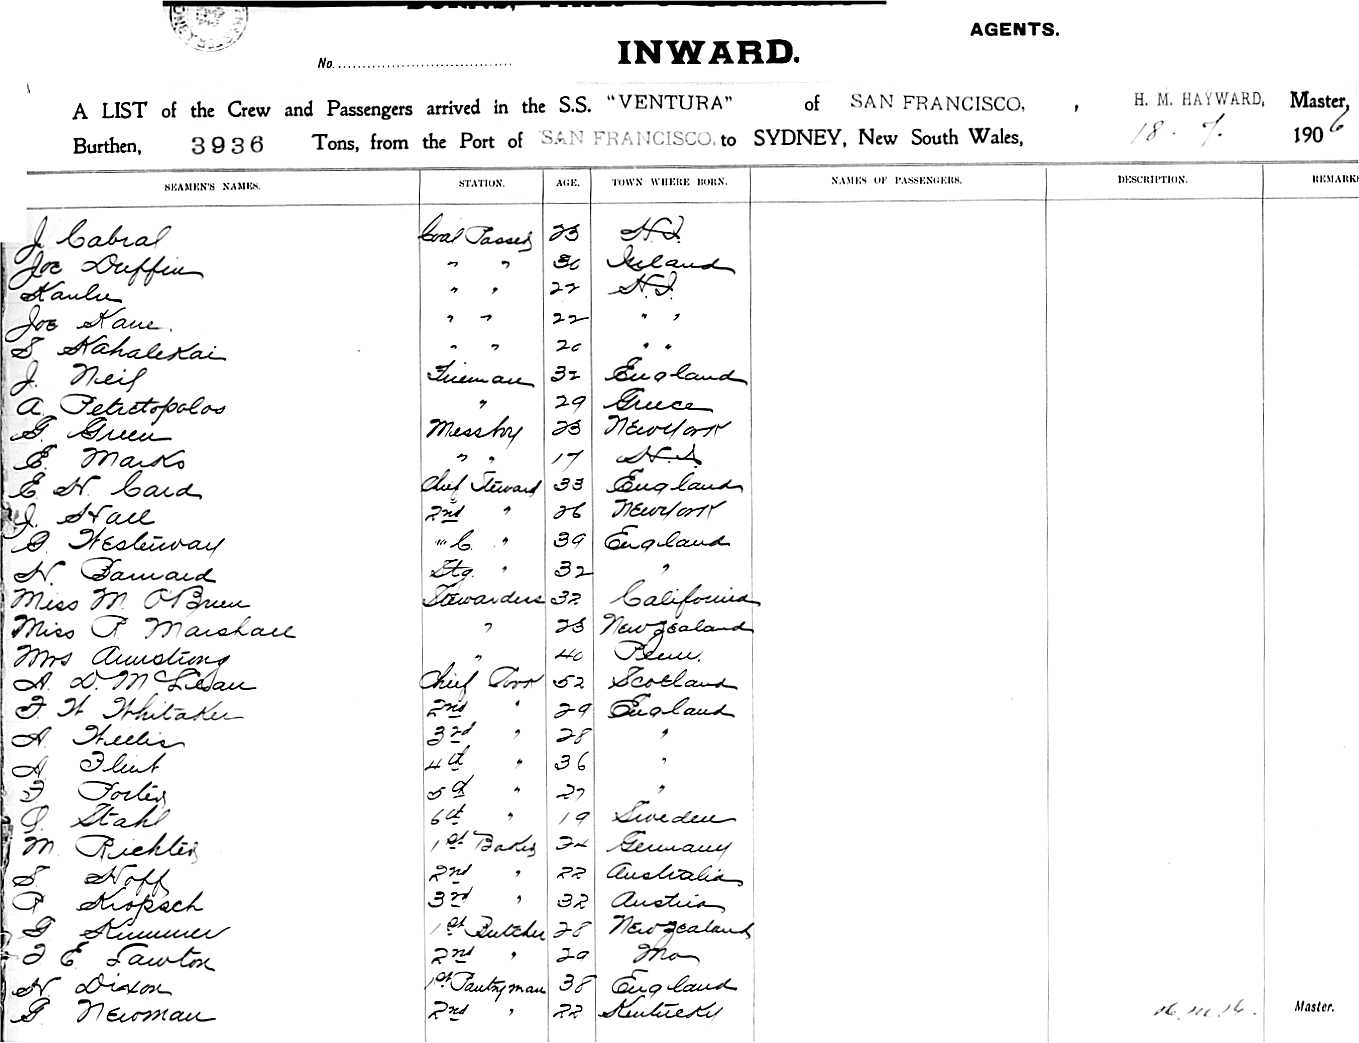 AGENTS.
INWARD.
No.
A LIST of the Crew and Passengers arrived in the S.S. "VENTURA" of SAN FRANCISCO, , H. M. HAYWARD, Master,
Burthen, 3936 Tons, from the Port of SAN FRANCISCO. to SYDNEY, New South Wales, 18 . 7. 1906
SEAMEN'S NAMES. STATION. AGE. TOWN WHERE BORN. NAMES OF PASSENGERS. DESCRIPTION. REMARK
J. Cabral Coal Passer 23 H.I.
Joe Duffin " " 30 Ireland
Kaulu " " 22 H.I.
Joe Kane. " " 22 " "
S. Kahalekai " " 20 " "
J. Neil Fireman 32 England
A. Petretopolos " 29 Greece
G. Green Messboy 23 New York
E. Marks " " 17 H.I.
E H. Card Chief Steward 33 England
J. Hall 2nd " 26 New York
G. Westerway " C. " 39 England
H. Barnard Stg. " 32 "
Miss M. O'Brien Stewardess 32 California
Miss P. Marshall " 23 New Zealand
Mrs Armstrong " 40 Penn.
A. D. McLean Chief Cook 52 Scotland
F W Whitaker 2nd " 29 England
A. Willis 3rd " 28 "
A Flint 4th " 36 "
F. Porter 5th " 27 "
O. Stahl 6th " 19 Sweden
M. Richter 1st Baker 24 Germany
S Hoff 2nd " 22 Australia
P Kropsch 3rd " 32 Austria
G Kummer 1st Butcher 28 New Zealand
F E Lawton 2nd " 29 Mo
H Dixon 1st Pantryman 38 England
G Newman 2nd " 22 Kentucky
Master.